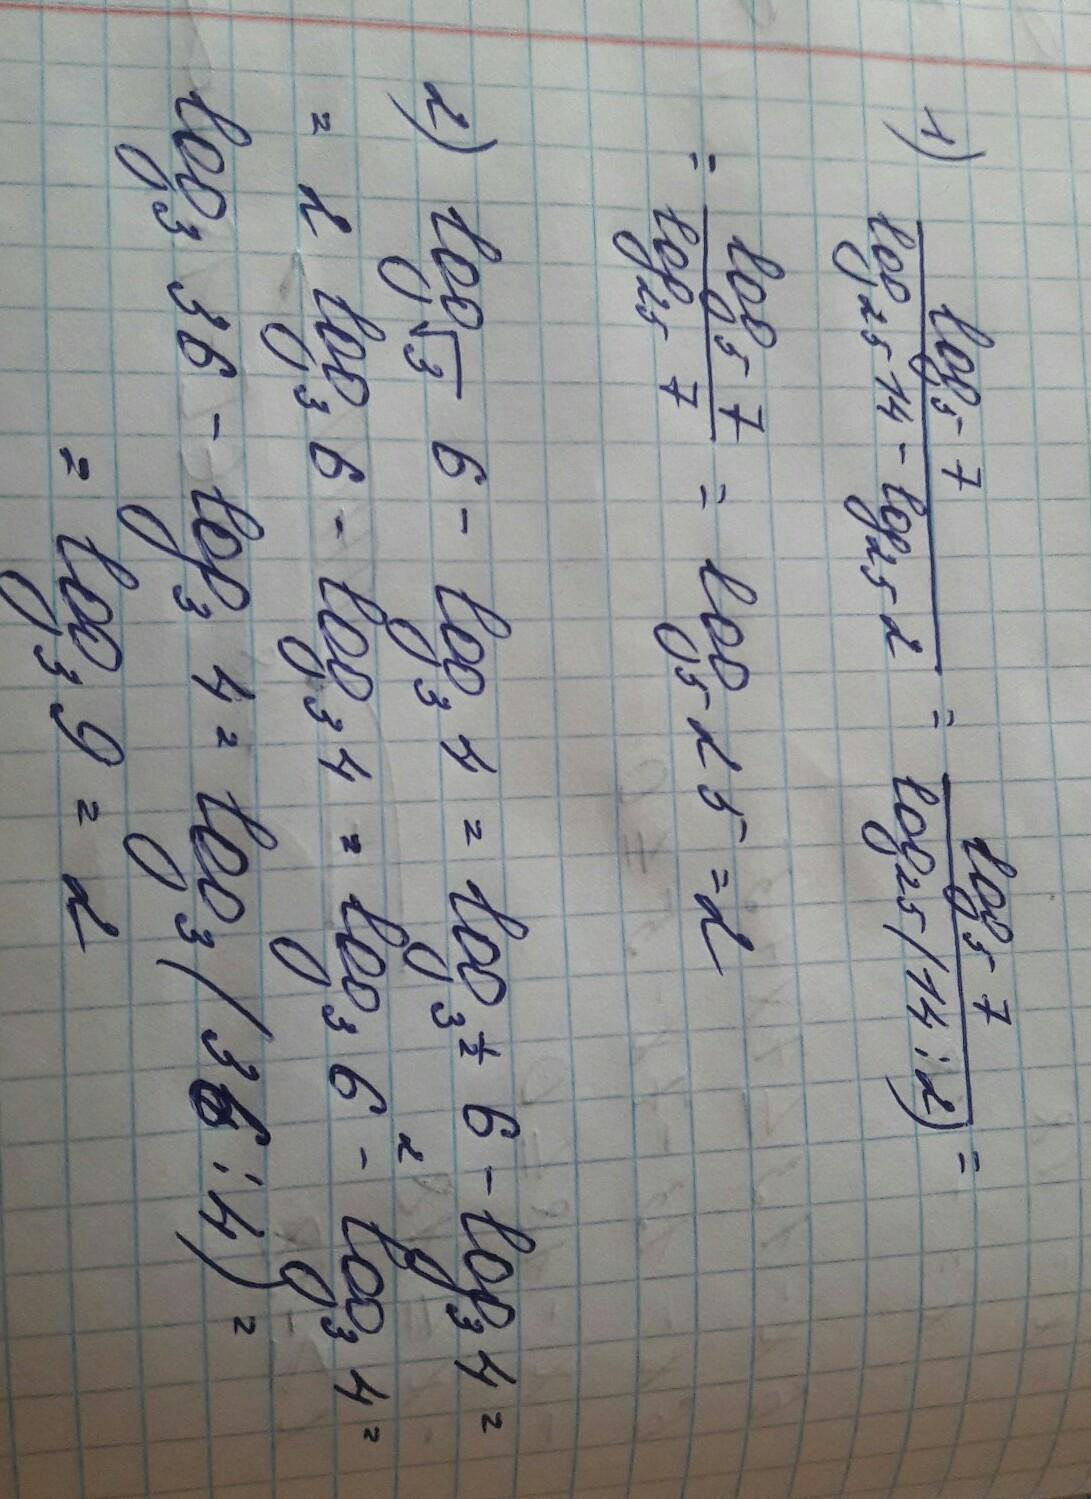 1) log₅ 7 / (log₂₅ 14 - log₂₅ 2) = log₅ 7 / log₂₅ (14 : 2) =
= log₅ 7 / log₂₅ 7 = log₅ 25 = 2
2) log_√3 6 - log₃ 4 = log_3^½ 6 - log₃ 4 =
= 2 log₃ 6 - log₃ 4 = log₃ 6² - log₃ 4 =
log₃ 36 - log₃ 4 = log₃ (36 : 4) =
= log₃ 9 = 2